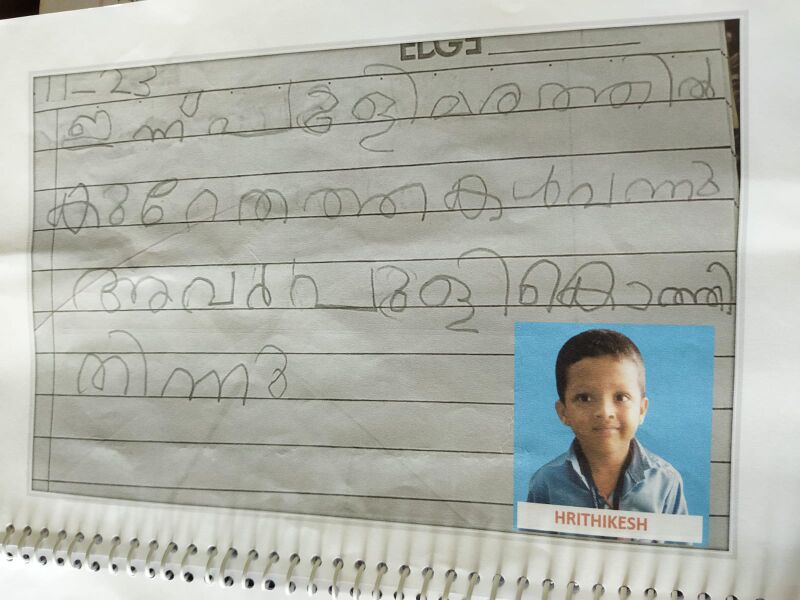 EDGE
11-23
ഇന്ന് പുളിമരത്തിൽ
കുറെതത്തകൾവന്നു
അവർപുളികൊത്തി
തിന്നു
HRITHIKESH